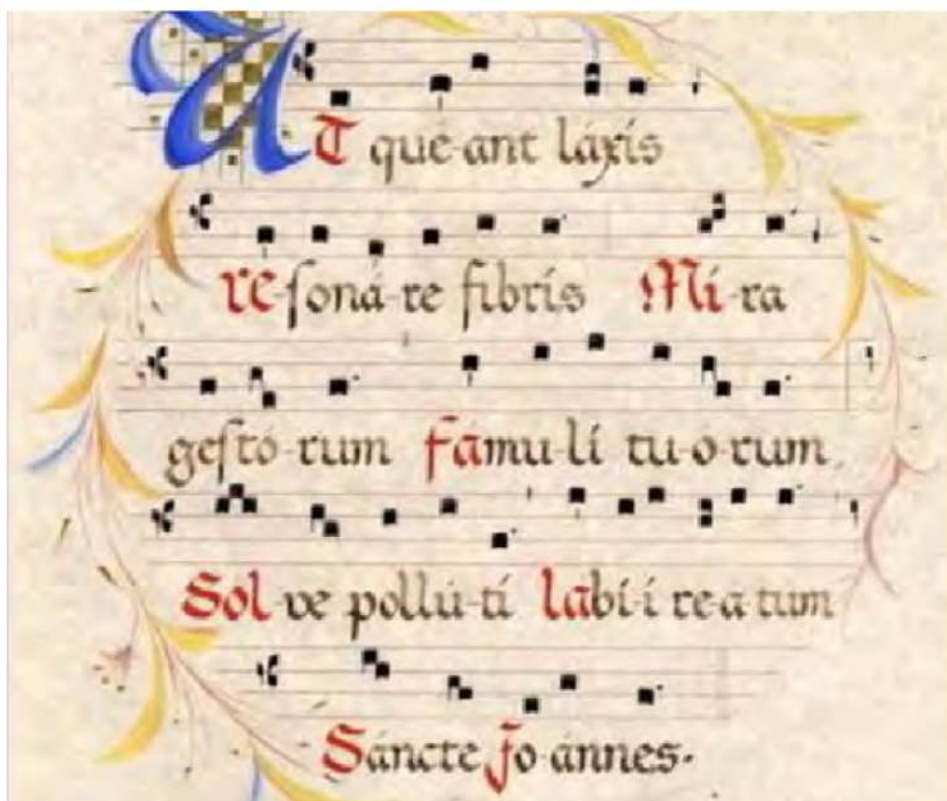 UT que-ant láxis
re-ſoná-re fibris Mi-ra
geſtó-rum famu-li tu-ó-rum,
Sol-ve pollú-ti labi-i re-a-tum
Sáncte Jo-ánnes.